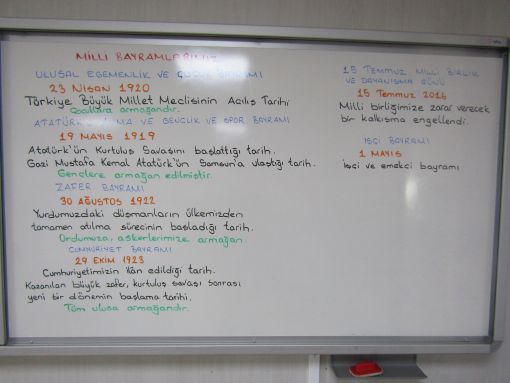 MİLLİ BAYRAMLARIMIZ
ULUSAL EGEMENLİK VE ÇOCUK BAYRAMI
23 NİSAN 1920
Türkiye Büyük Millet Meclisinin Açılış Tarihi
Çocuklara armağandır.
ATATÜRK'Ü ANMA VE GENÇLİK VE SPOR BAYRAMI
19 MAYIS 1919
Atatürk'ün Kurtuluş Savaşını başlattığı tarih.
Gazi Mustafa Kemal Atatürk'ün Samsun'a ulaştığı tarih.
Gençlere armağan edilmiştir.
ZAFER BAYRAMI
30 AĞUSTOS 1922
Yurdumuzdaki düşmanların ülkemizden
tamamen atılma sürecinin başladığı tarih.
Ordumuza, askerlerimize armağan.
CUMHURİYET BAYRAMI
29 EKİM 1923
Cumhuriyetimizin ilân edildiği tarih.
Kazanılan büyük zafer, kurtuluş savaşı sonrası
yeni bir dönemin başlama tarihi.
Tüm ulusa armağandır.
15 TEMMUZ MİLLİ BİRLİK
VE DAYANIŞMA GÜNÜ
15 TEMMUZ 2016
Milli birliğimize zarar verecek
bir kalkışma engellendi.
İŞÇİ BAYRAMI
1 MAYIS
İşçi ve emekçi bayramı